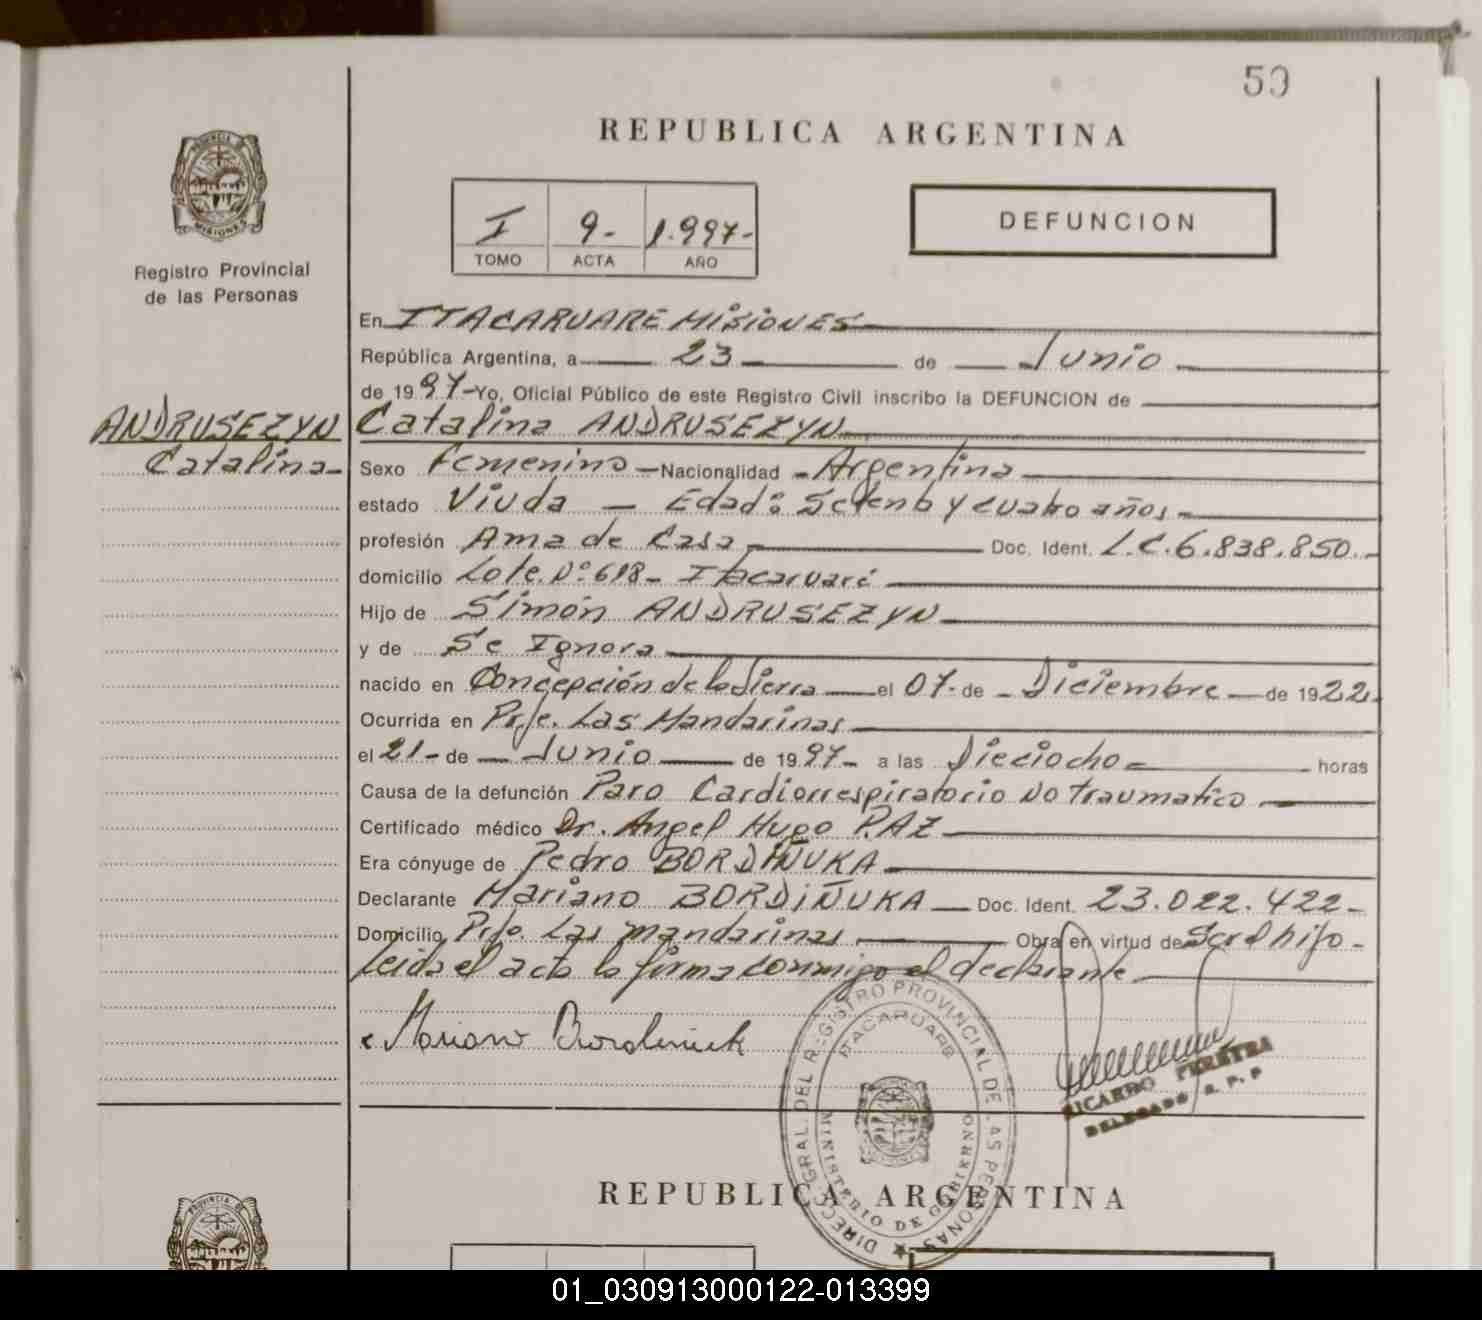 59
REPUBLICA ARGENTINA
PROVINCIA DE
MISIONES
Registro Provincial
de las Personas
I 9- 1.997-
TOMO ACTA AÑO
DEFUNCION
ANDRUSEZYN
Catalina-
En ITACARUARE MISIONES
República Argentina, a 23 de Junio
de 1997-Yo, Oficial Público de este Registro Civil inscribo la DEFUNCION de
Catalina ANDRUSEZYN
Sexo Femenino - Nacionalidad - Argentina
estado Viuda - Edad: Setenta y cuatro años-
profesión Ama de Casa Doc. Ident. L.C. 6.838.850.-
domicilio Lote. Nº 618- Itacaruaré
Hijo de Simón ANDRUSEZYN
y de Se Ignora
nacido en Concepción de la Sierra el 07- de - Diciembre - de 1922.
Ocurrida en Prje. Las Mandarinas
el 21- de Junio de 1997- a las Dieciocho- horas
Causa de la defunción Paro Cardiorrespiratorio No traumatico
Certificado médico Dr. Angel Hugo PAZ
Era cónyuge de Pedro BORDIÑUKA
Declarante Mariano BORDIÑUKA - Doc. Ident. 23.022.422-
Domicilio Prje. Las mandarinas Obra en virtud de Ser el hijo-
Leida el acta la firma conmigo el declarante
Mariano Bordeniuk
DIRECC. GRAL. DEL REGISTRO PROVINCIAL DE LAS PERSONAS
ITACARUARE
MINISTERIO DE GOBIERNO
RICARDO PEREYRA
DELEGADO R. P. P
REPUBLICA ARGENTINA
PROVINCIA DE
01_030913000122-013399